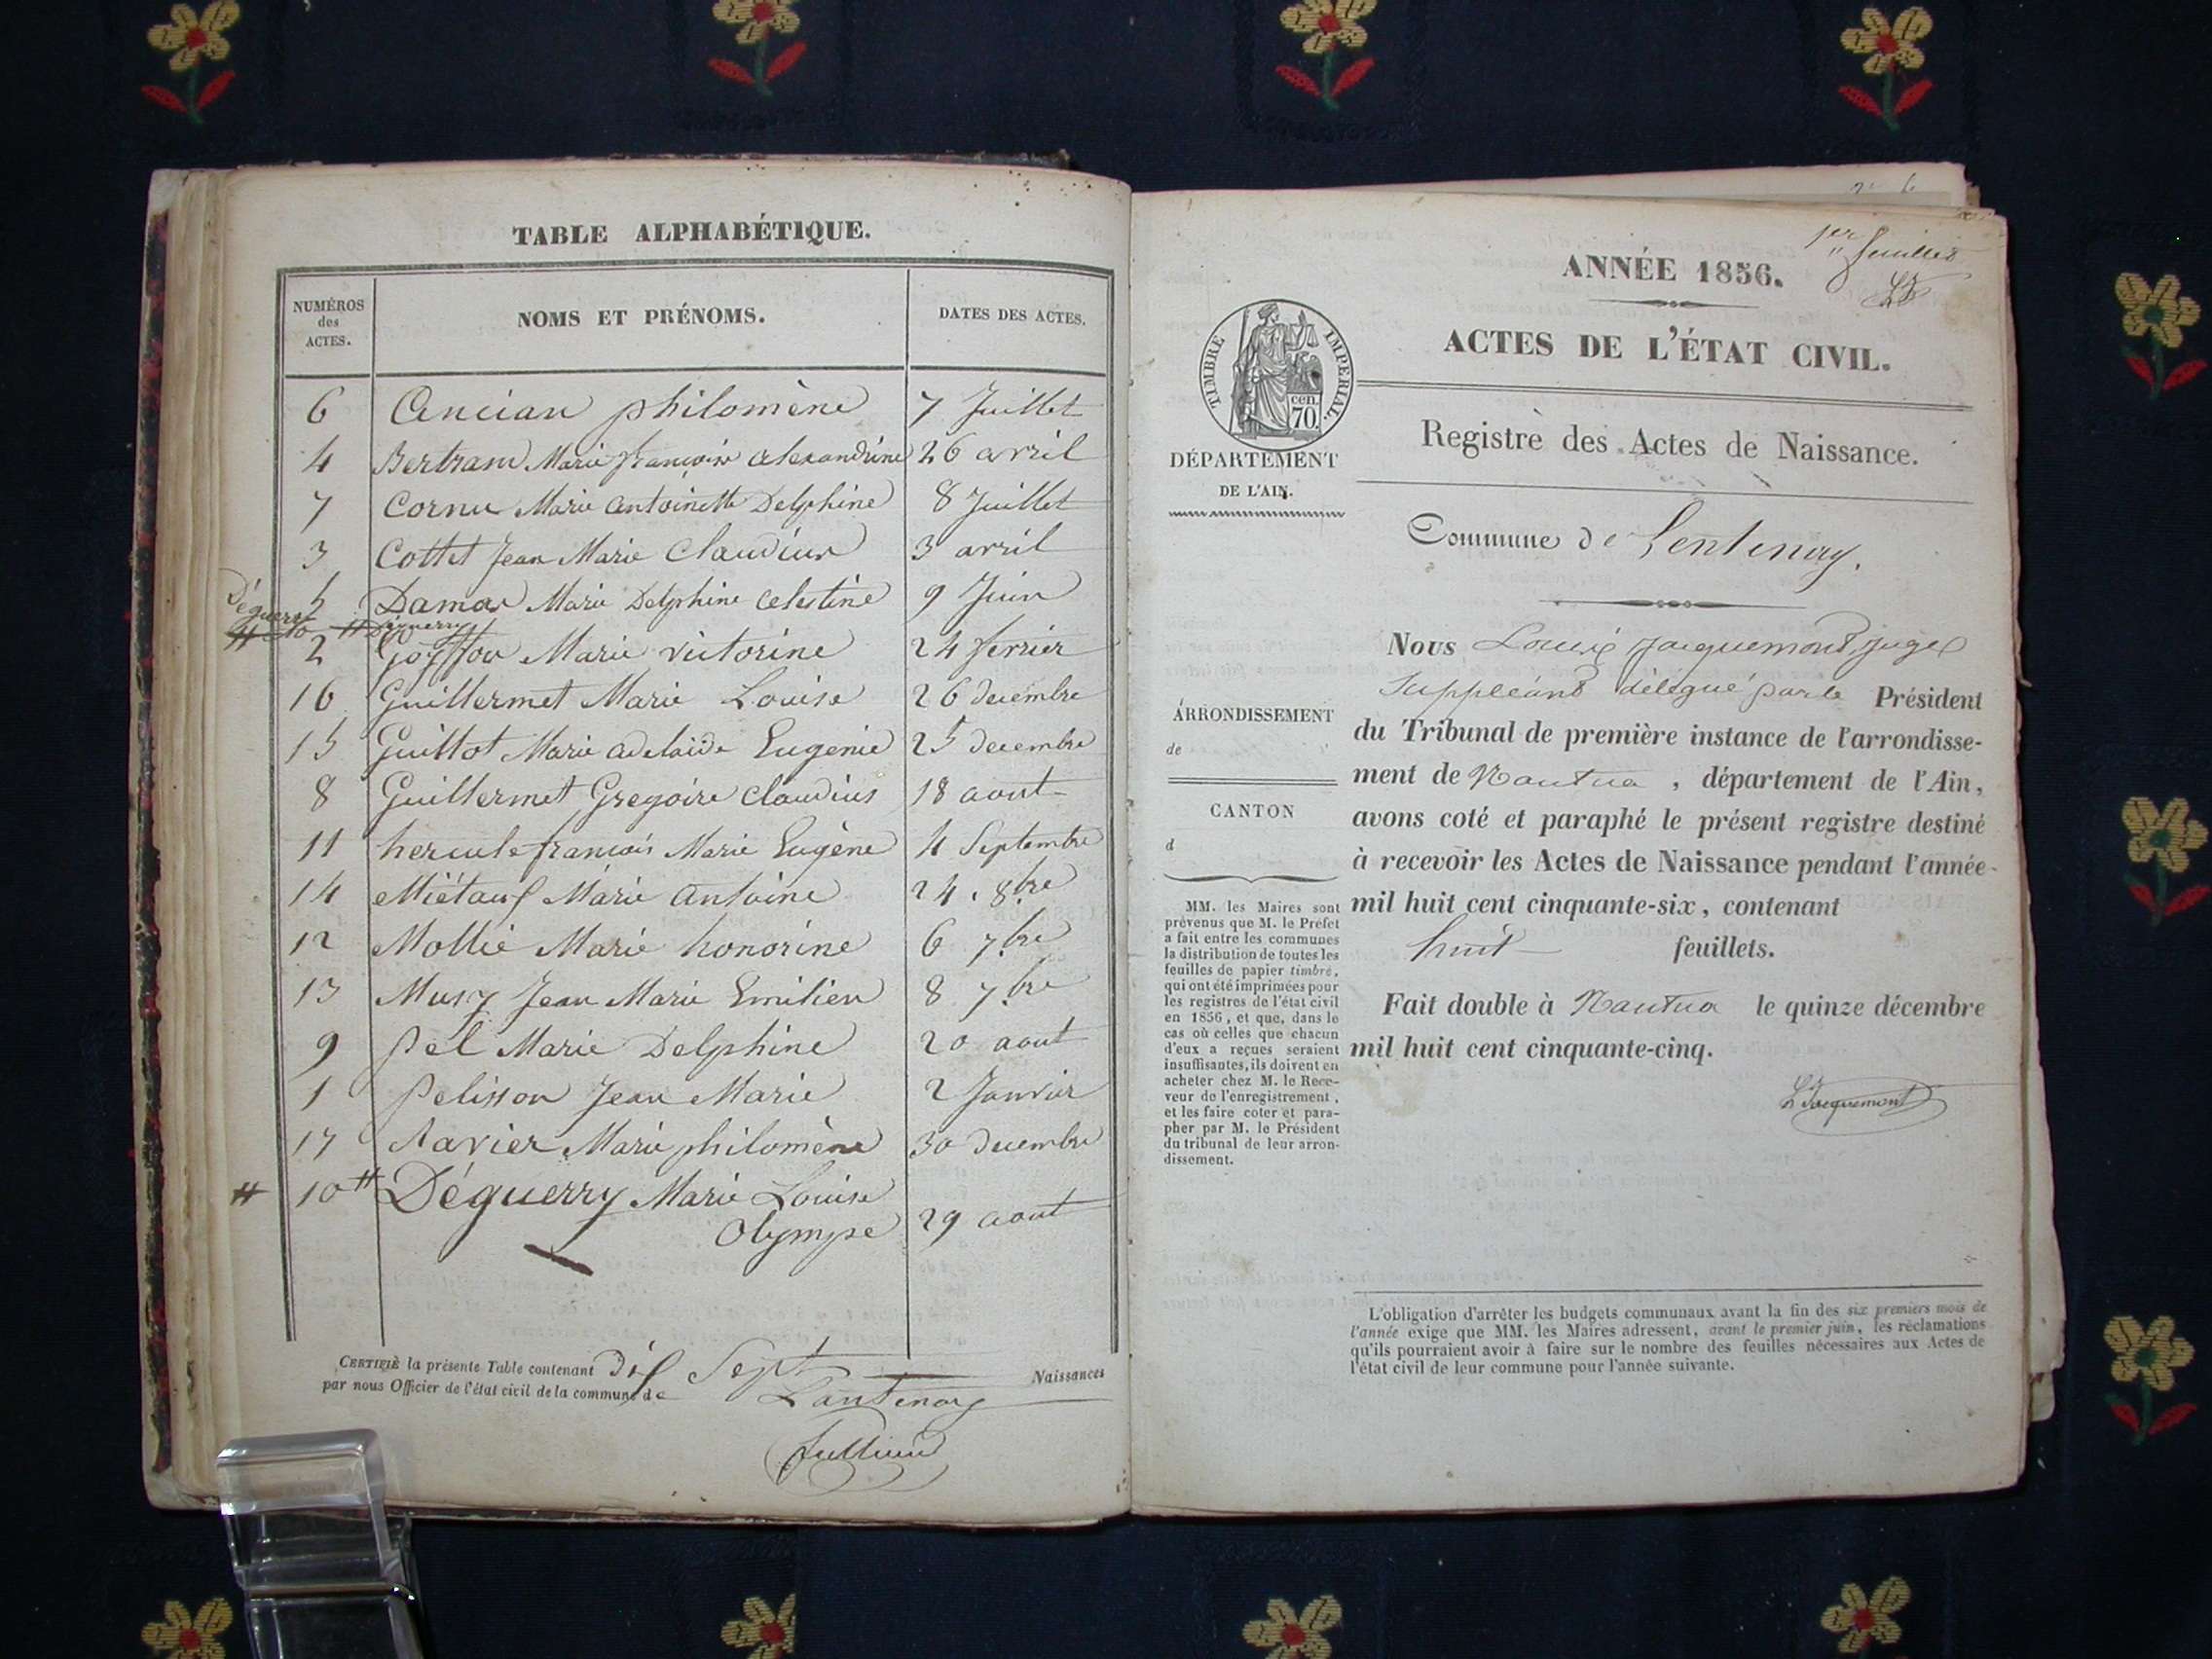 TABLE ALPHABÉTIQUE.
NUMÉROS des ACTES. NOMS ET PRÉNOMS. DATES DES ACTES.
6 Ancian philomène 7 Juillet
4 Bertrand Marie françoise alexandrine 26 avril
7 Cornu Marie antoinette Delphine 8 Juillet
3 Cottet Jean Marie Claudius 3 avril
5 Damas Marie Delphine celestine 9 Juin
Déguerry
# 10 # Déguerry
2 Goyffon Marie victorine 24 fevrier
16 Guillermet Marie Louise 26 decembre
15 Guillot Marie adelaide Eugenie 25 decembre
8 Guillermet Gregoire Claudius 18 aout
11 hercule françois Marie Eugène 4 Septembre
14 Miétaux Marie antoine 24. 8bre
12 Mollie Marie honorine 6 7bre
13 Musy Jean Marie Emilien 8 7bre
9 Pel Marie Delphine 20 aout
1 Pelisson Jean Marie 2 Janvier
17 Savier Marie philomène 30 decembre
# 10 # Déguerry Marie Louise
Olympe 29 aout
CERTIFIÉ la présente Table contenant dix Sept Naissances
par nous Officier de l'état civil de la commune de Lantenay
1er feuillet
ANNÉE 1856.
LJ
ACTES DE L'ÉTAT CIVIL.
TIMBRE IMPÉRIAL.
cen. 70.
Registre des Actes de Naissance.
DÉPARTEMENT
DE L'AIN.
Commune de Lentenay.
Nous Louis Jacquemont, juge
Suppléant délégué par le Président
du Tribunal de première instance de l'arrondisse-
ment de Nantua, département de l'Ain,
avons coté et paraphé le présent registre destiné
à recevoir les Actes de Naissance pendant l'année
mil huit cent cinquante-six, contenant
huit feuillets.
Fait double à Nantua le quinze décembre
mil huit cent cinquante-cinq.
L Jacquemont
ARRONDISSEMENT
de
CANTON
d
MM. les Maires sont
prévenus que M. le Préfet
a fait entre les communes
la distribution de toutes les
feuilles de papier timbré,
qui ont été imprimées pour
les registres de l'état civil
en 1856, et que, dans le
cas où celles que chacun
d'eux a reçues seraient
insuffisantes, ils doivent en
acheter chez M. le Rece-
veur de l'enregistrement,
et les faire coter et para-
pher par M. le Président
du tribunal de leur arron-
dissement.
L'obligation d'arrêter les budgets communaux avant la fin des six premiers mois de
l'année exige que MM. les Maires adressent, avant le premier juin, les réclamations
qu'ils pourraient avoir à faire sur le nombre des feuilles nécessaires aux Actes de
l'état civil de leur commune pour l'année suivante.